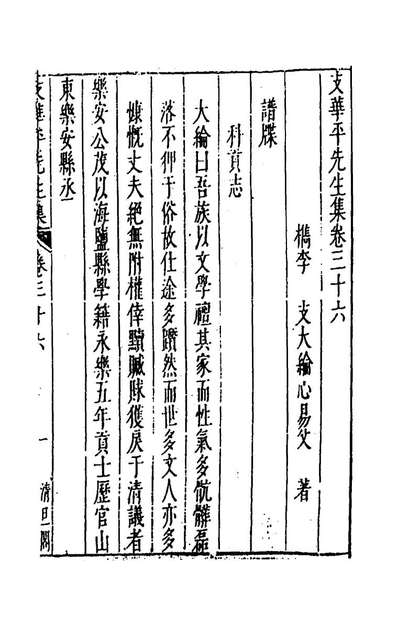 支華平先生集卷三十六
檇李 支大綸心易父 著
譜牒
科貢志
大綸曰吾族以文學禮其家而性氣多骯髒磊
落不狎于俗故仕途多躓然而世多文人亦多
慷慨丈夫絕無附權倖黷贓賕獲戾于清議者
樂安公茂以海鹽縣學籍永樂五年貢士歷官山
東樂安縣丞
支華平先生集 卷三十六 一 清旦閣